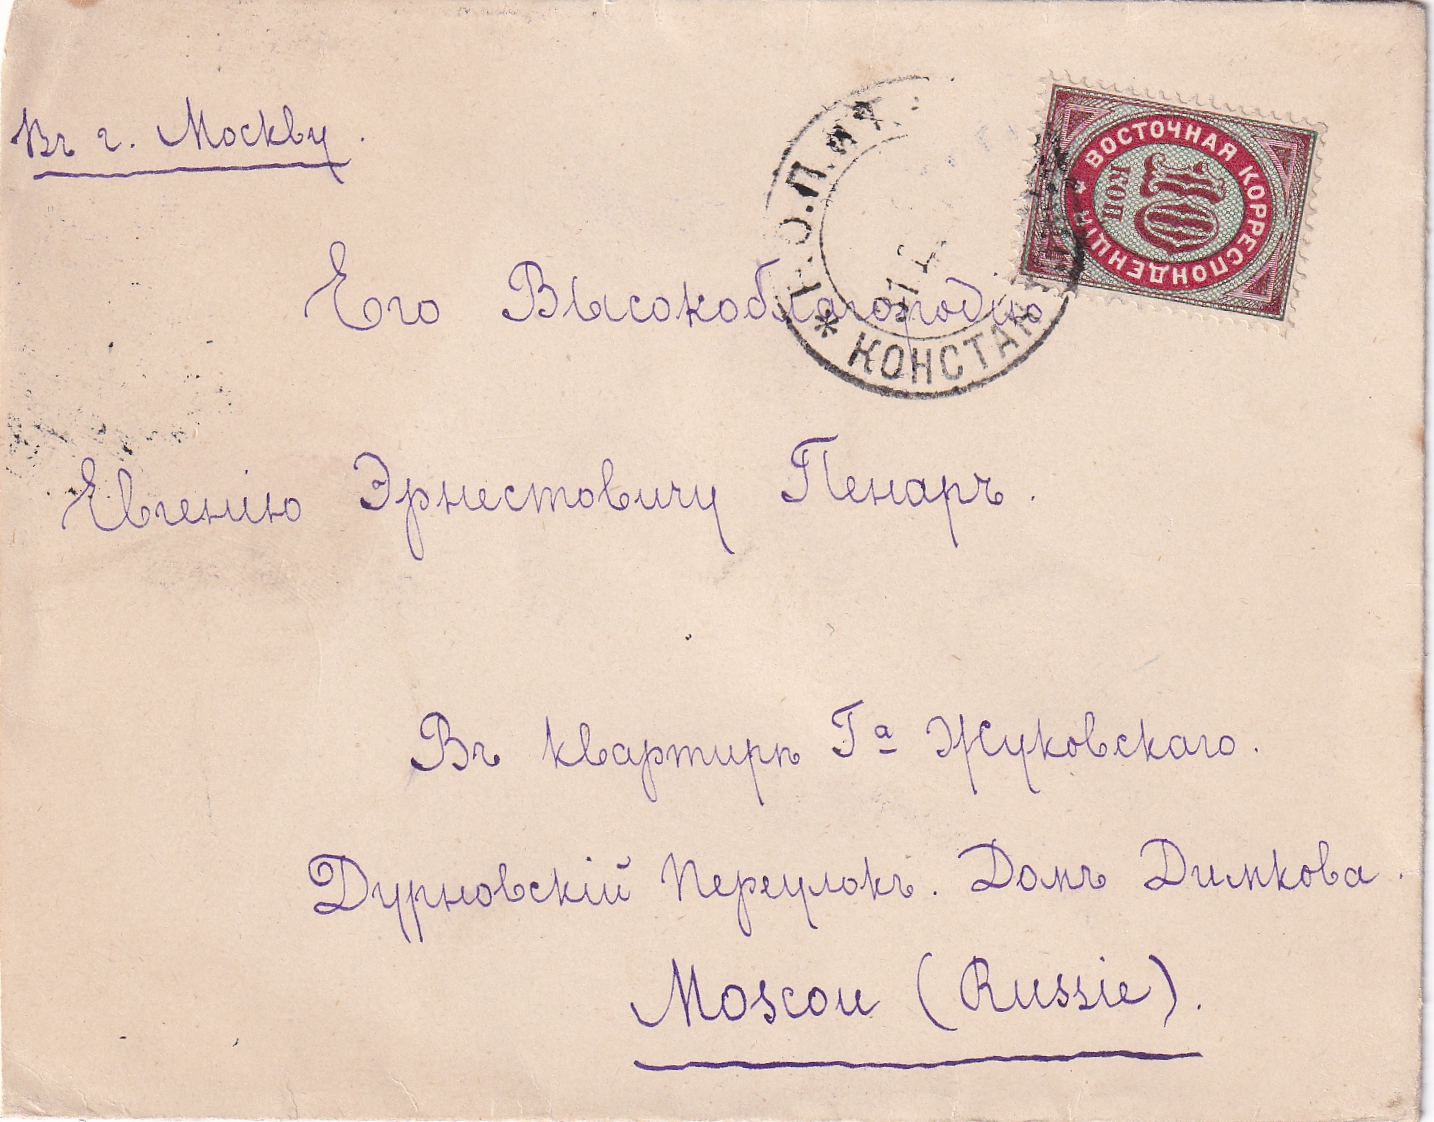 Въ г. Москву.
ВОСТОЧНАЯ КОРРЕСПОНДЕНЦІЯ
10
КОП
Р.О.П.
* КОНСТАН
Его Высокоблагородію
Евгенію Эрнестовичу Пенаръ.
Въ квартирѣ Га Жуковскаго.
Дурновскій переулокъ. Домъ Димкова.
Moscou (Russie).